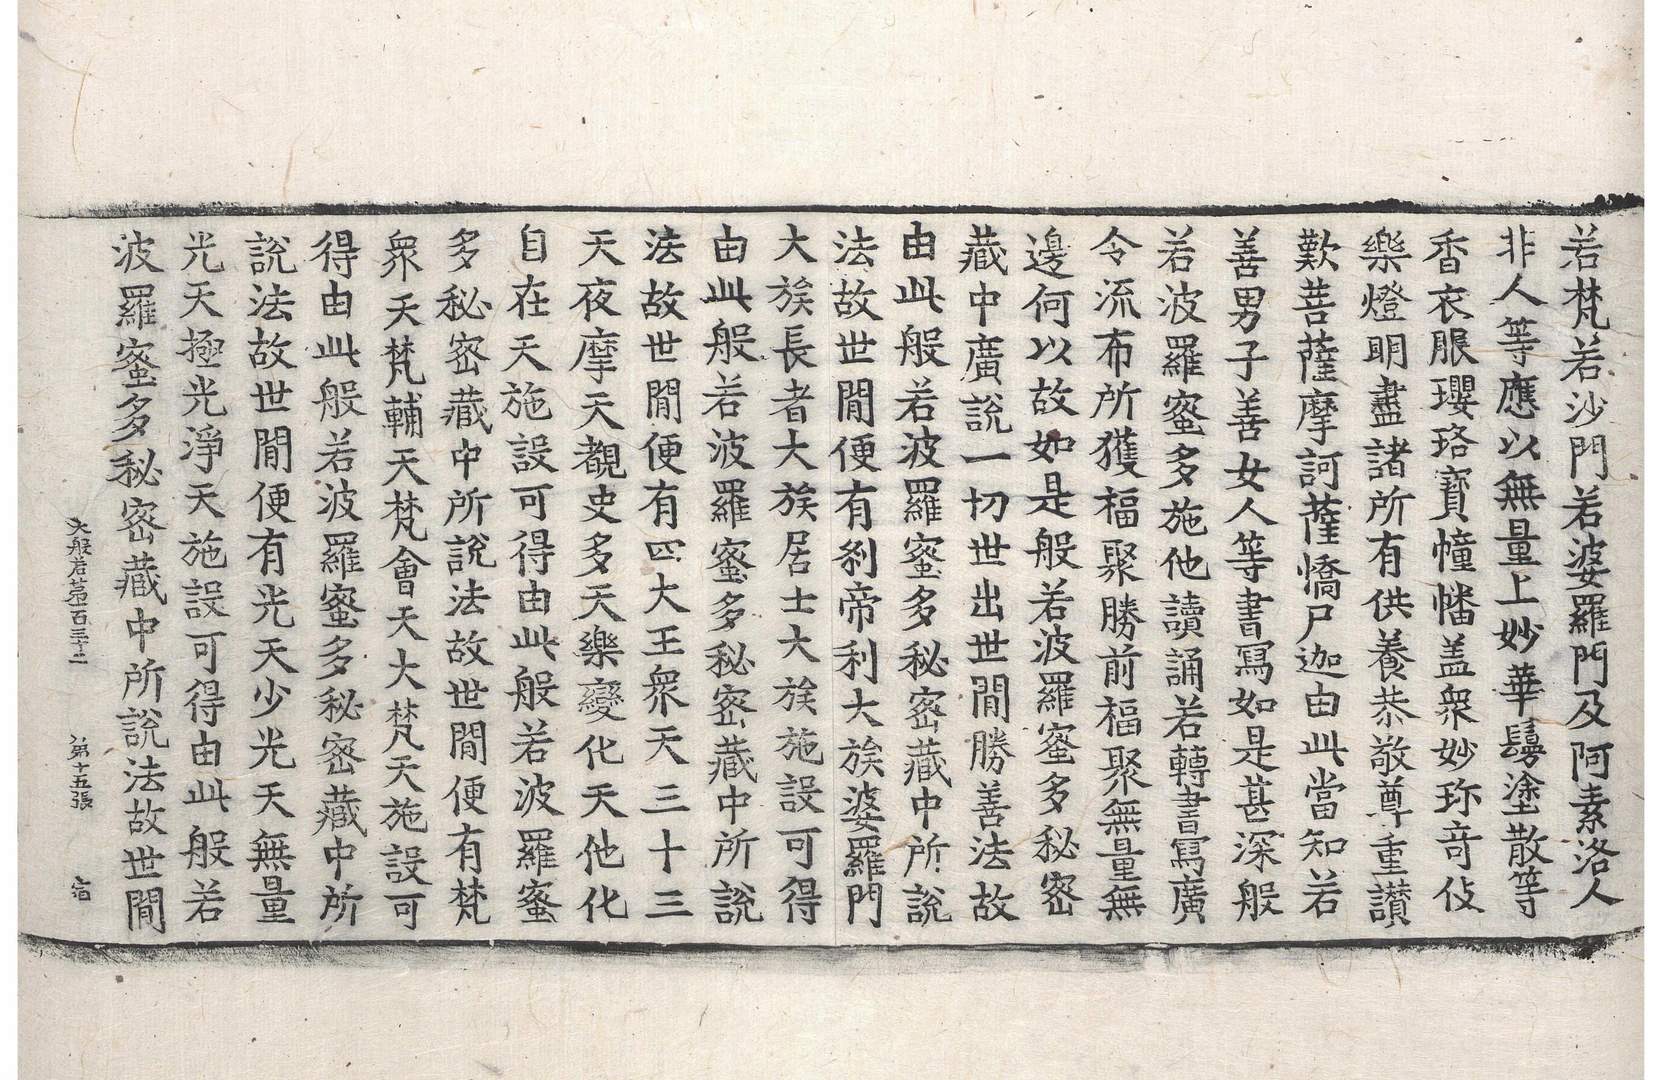 若梵若沙門若婆羅門及阿素洛人
非人等應以無量上妙華鬘塗散等
香衣服瓔珞寶幢幡盖衆妙珎奇伎
樂燈明盡諸所有供養恭敬尊重讃
歎菩薩摩訶薩憍尸迦由此當知若
善男子善女人等書寫如是甚深般
若波羅蜜多施他讀誦若轉書寫廣
令流布所獲福聚勝前福聚無量無
邊何以故如是般若波羅蜜多秘密
藏中廣說一切世出世間勝善法故
由此般若波羅蜜多秘密藏中所說
法故世間便有剎帝利大族婆羅門
大族長者大族居士大族施設可得
由此般若波羅蜜多秘密藏中所說
法故世間便有四大王衆天三十三
天夜摩天覩史多天樂變化天他化
自在天施設可得由此般若波羅蜜
多秘密藏中所說法故世間便有梵
衆天梵輔天梵會天大梵天施設可
得由此般若波羅蜜多秘密藏中所
說法故世間便有光天少光天無量
光天極光淨天施設可得由此般若
波羅蜜多秘密藏中所說法故世間
大般若第一百三十二 第十五張 宿